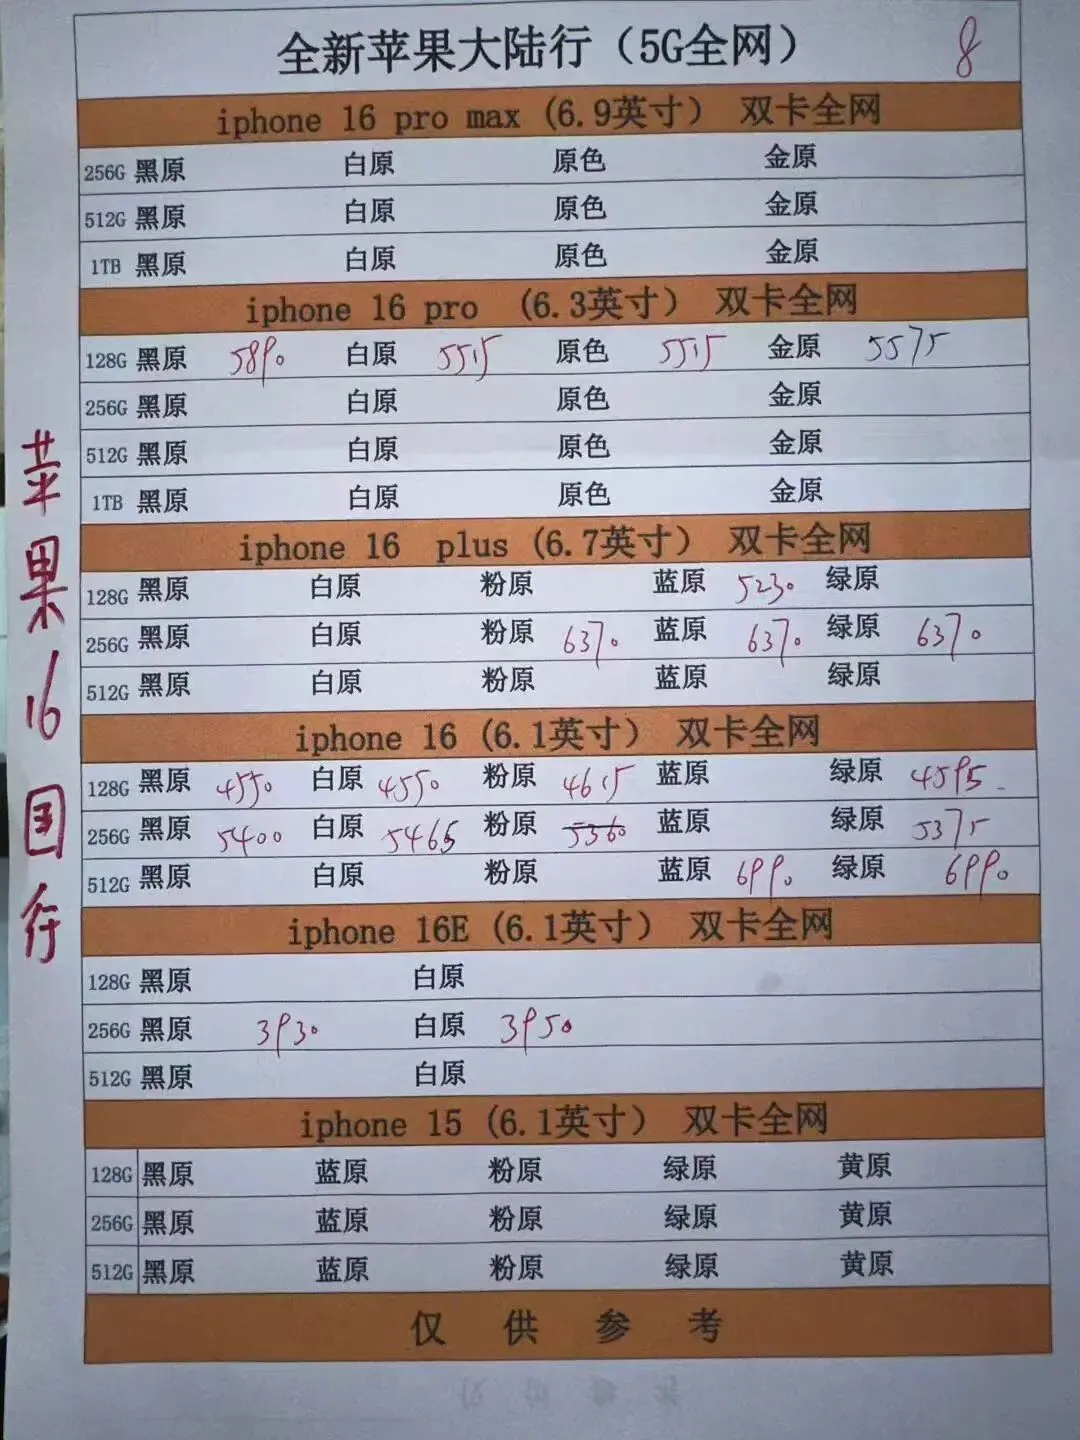 全新苹果大陆行（5G全网） 8
iphone 16 pro max (6.9英寸） 双卡全网
256G 黑原 白原 原色 金原
512G 黑原 白原 原色 金原
1TB 黑原 白原 原色 金原
iphone 16 pro （6.3英寸） 双卡全网
128G 黑原 5890 白原 5515 原色 5515 金原 5575
256G 黑原 白原 原色 金原
512G 黑原 白原 原色 金原
1TB 黑原 白原 原色 金原
iphone 16 plus (6.7英寸） 双卡全网
128G 黑原 白原 粉原 蓝原 5230 绿原
256G 黑原 白原 粉原 6370 蓝原 6370 绿原 6370
512G 黑原 白原 粉原 蓝原 绿原
iphone 16 (6.1英寸） 双卡全网
128G 黑原 4550 白原 4550 粉原 4615 蓝原 绿原 4595
256G 黑原 5400 白原 5465 粉原 5360 蓝原 绿原 5375
512G 黑原 白原 粉原 蓝原 6990 绿原 6990
iphone 16E (6.1英寸） 双卡全网
128G 黑原 白原
256G 黑原 3930 白原 3950
512G 黑原 白原
iphone 15 (6.1英寸） 双卡全网
128G 黑原 蓝原 粉原 绿原 黄原
256G 黑原 蓝原 粉原 绿原 黄原
512G 黑原 蓝原 粉原 绿原 黄原
仅供参考
苹果16国行